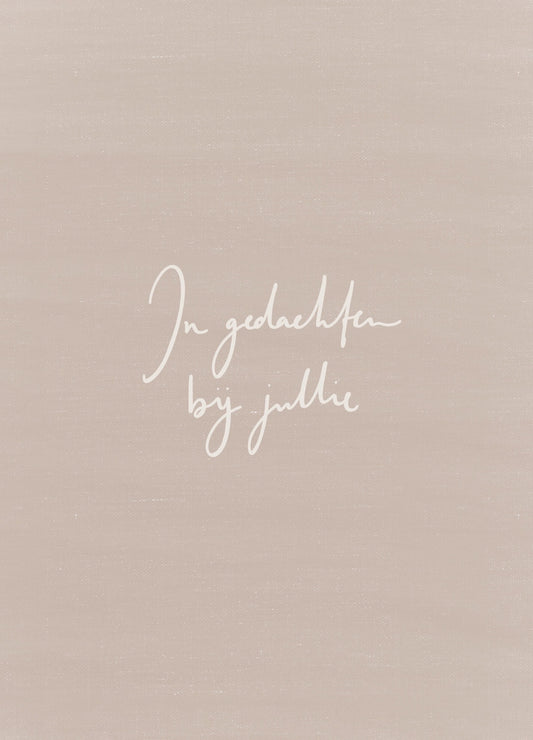 In gedachten
bij jullie